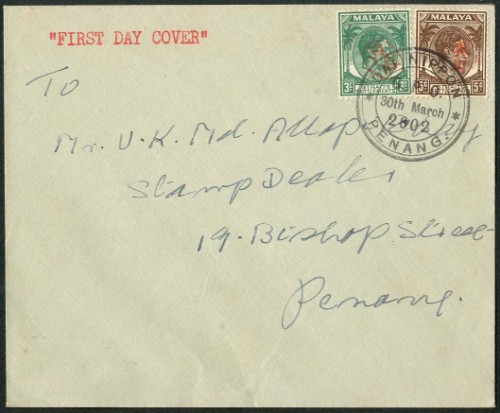 "FIRST DAY COVER"
MALAYA MALAYA
3c 5c
DAI NIPPON
30th March
2602
PENANG
To
Mr. V. K. Md.
Stamp Dealer
19 - Bishop Street
Penang.